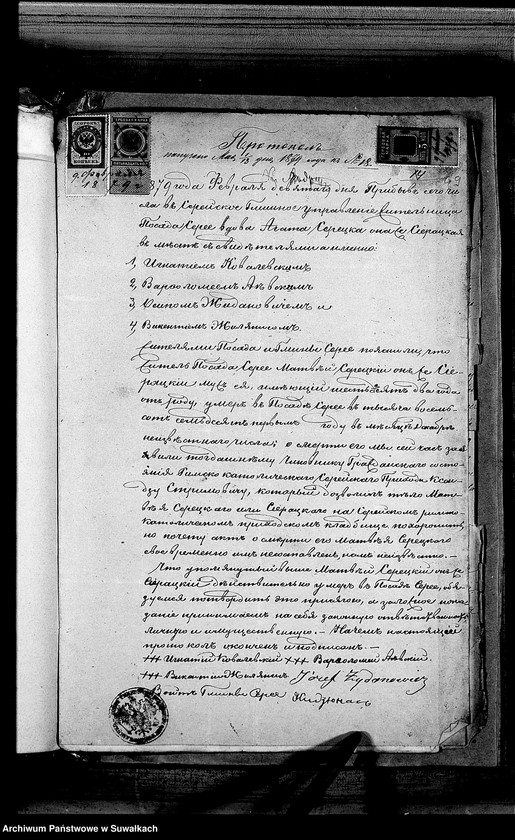 Протоколъ
получено Мая 13 дня 1879 года къ № 18
14
18
1879 года Февраля девятаго дня Прибыв сего чи
сла въ Серейское Гминное управление жительница
Посада Серее вдова Агата Серецка она же Сіерацкая
въ мѣстѣ съ свидѣтелями а именно:
1, Игнатіемъ Ковалевскимъ
2, Варѳоломеемъ
3, Осипомъ Жидановичемъ и
4, Викентіемъ
жителями Посада и Гмины Серее пояснили, что
житель Посада Серее Матвѣй Серецкій онъ же Сіе-
рацкій мужъ ея, имѣющій шестьдесятъ два года
отъ роду, умеръ въ Посадѣ Серее въ тысяча восемь-
сотъ семьдесятъ первымъ году въ мѣсяцѣ Декабрѣ
неизвѣстнаго числа; о смерти его мы сей часъ зая
вили тогдашнему Чиновнику Гражданскаго состо-
янія Римско католическаго Серейскаго Прихода Ксен-
дзу Стримовичу, который дозволилъ тѣло Матв-
ѣя Серецкаго или Сіерацкаго на Серейскомъ римско
католическомъ приходскомъ кладбище похоронить,
но почему актъ о смерти его Матвѣя Серецкаго
своевременно имъ несоставленъ, намъ неизвѣстно. —
Что упомянутый выше Матвѣй Серецкій онъ же
Сіерацкій дѣйствительно умеръ въ Посадѣ Серее, обя-
зуемся потвердить это присягою, а за ложное пока-
заніе принимаемъ на себя законную отвѣтственность
личную и имущественную. — На чемъ настоящій
протоколъ оконченъ и подписанъ. —
+++ Игнатій Ковалевскій +++ Варѳоломей
+++ Викентій Józef Żydanowicz
Войтъ Гмины Серее
Archiwum Państwowe w Suwałkach